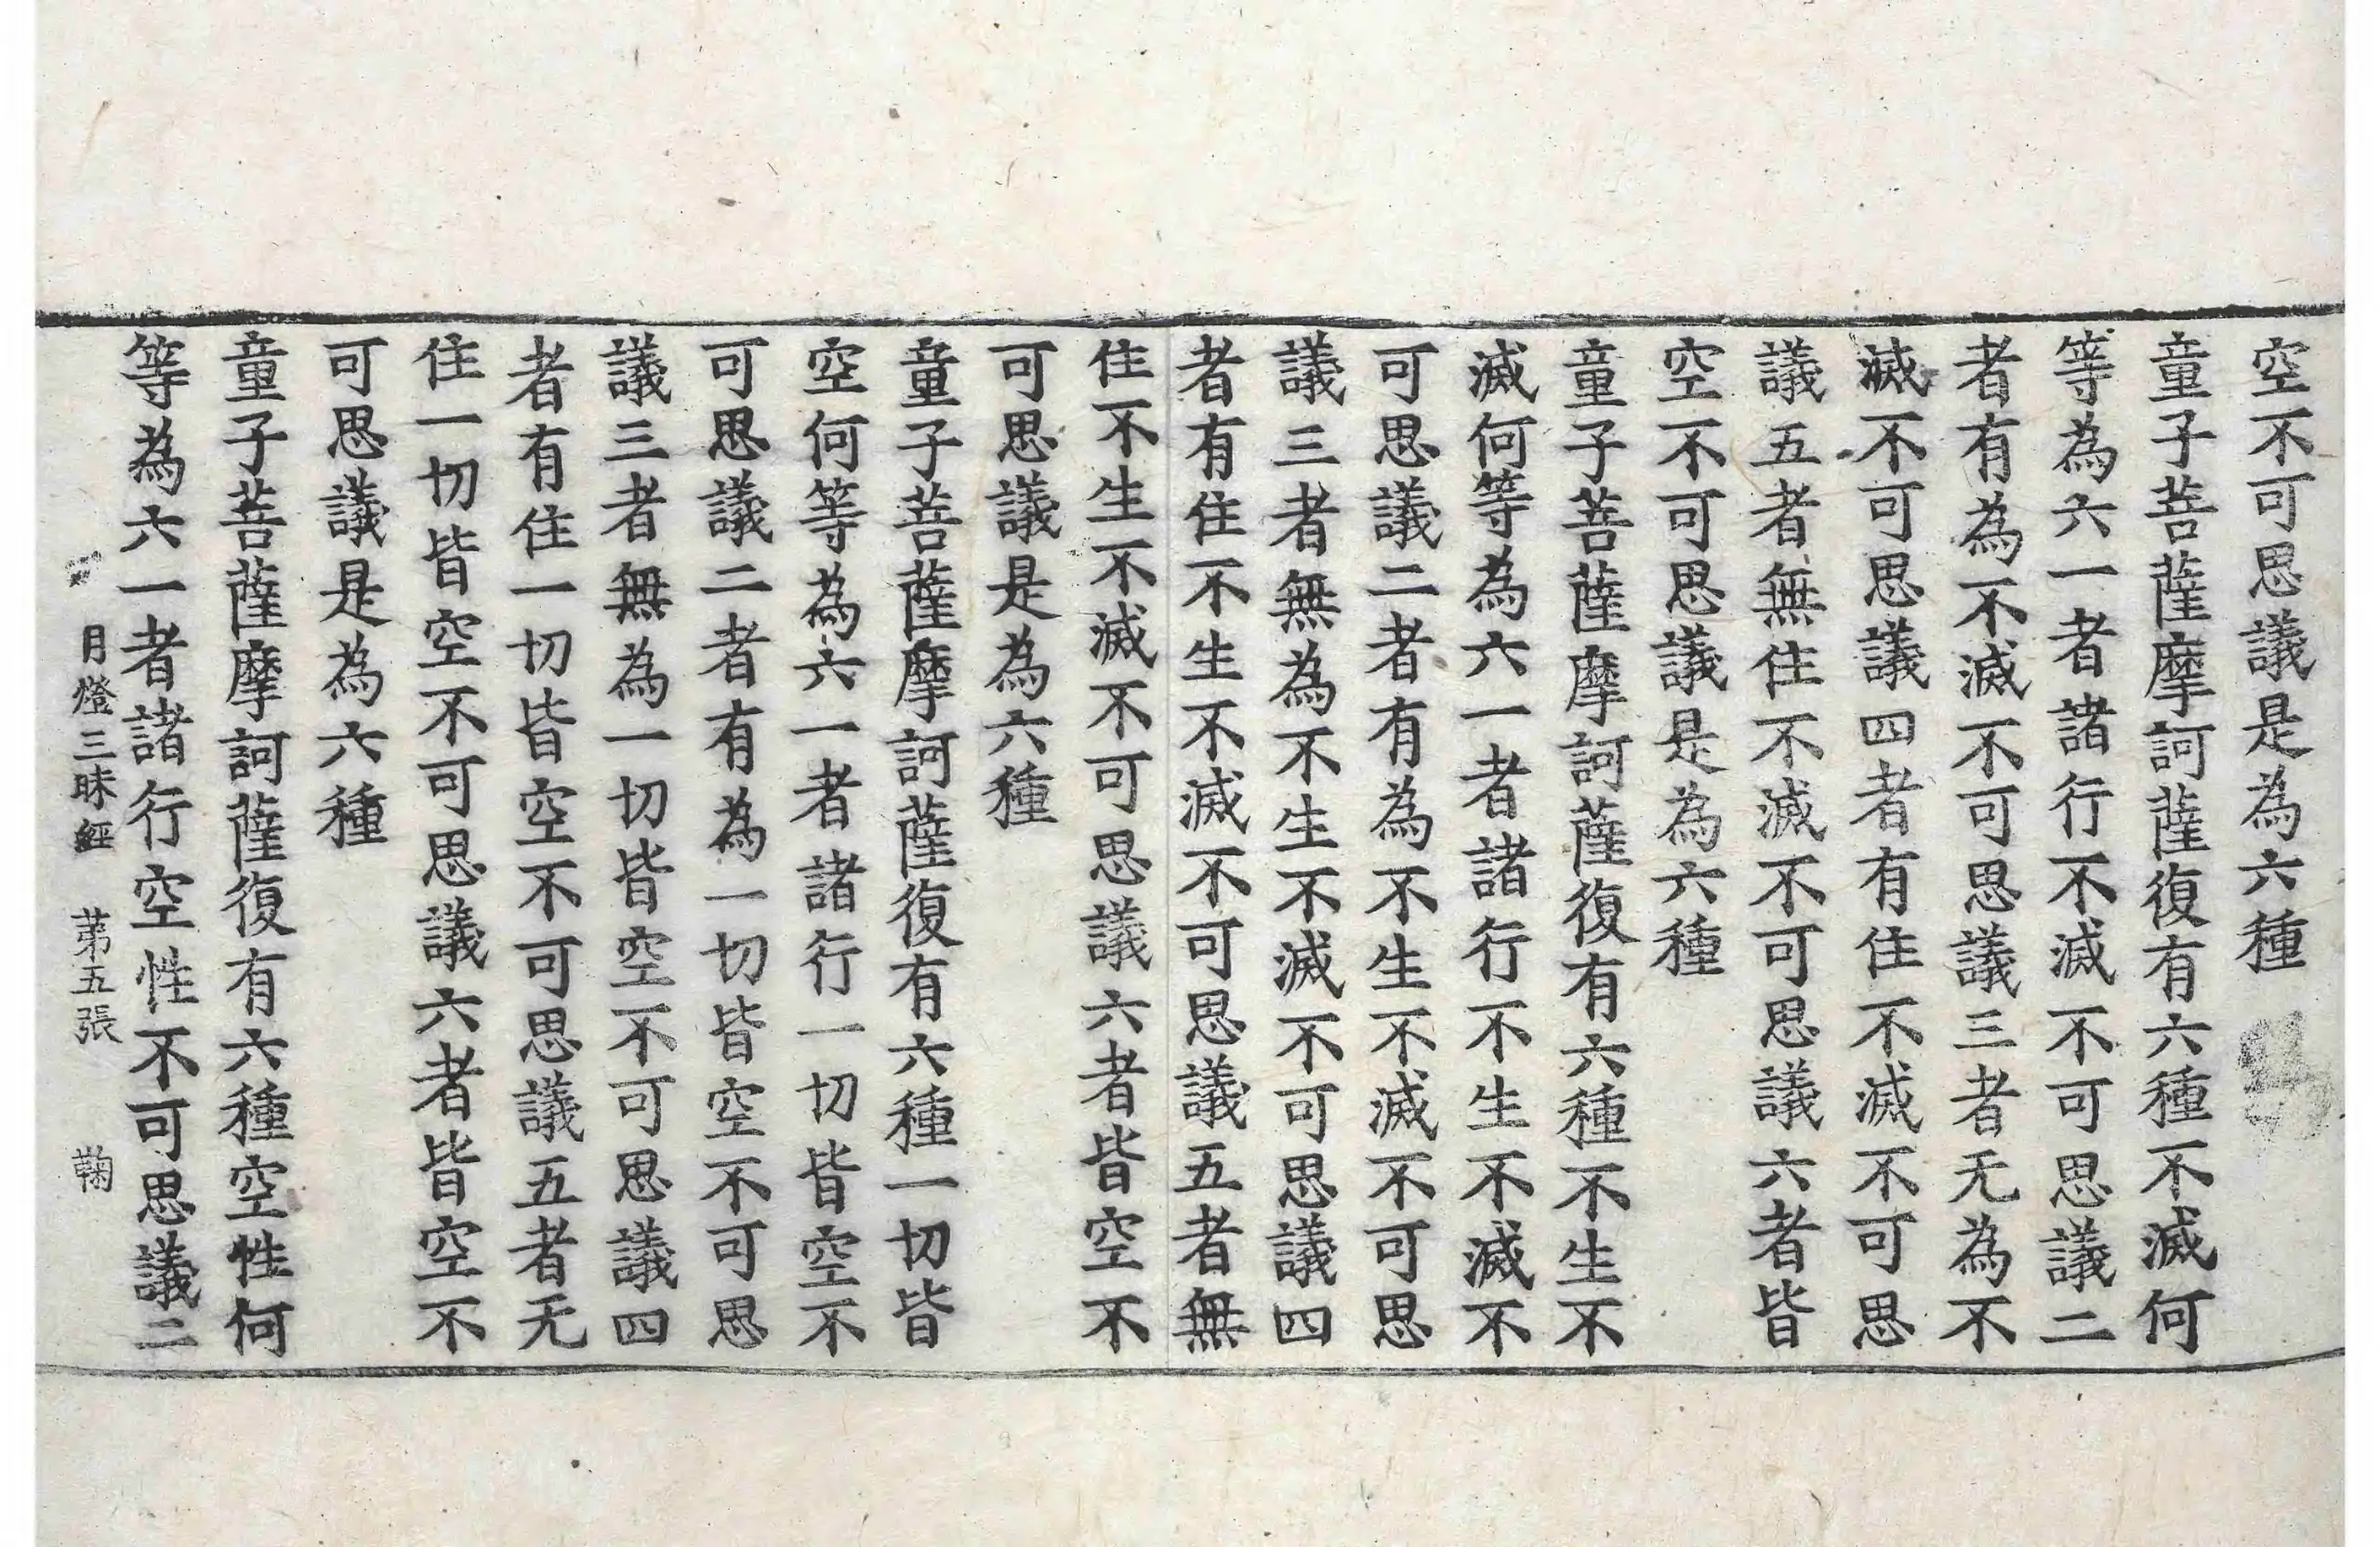 空不可思議是為六種
童子菩薩摩訶薩復有六種不滅何
等為六一者諸行不滅不可思議二
者有為不滅不可思議三者无為不
滅不可思議四者有住不滅不可思
議五者無住不滅不可思議六者皆
空不可思議是為六種
童子菩薩摩訶薩復有六種不生不
滅何等為六一者諸行不生不滅不
可思議二者有為不生不滅不可思
議三者無為不生不滅不可思議四
者有住不生不滅不可思議五者無
住不生不滅不可思議六者皆空不
可思議是為六種
童子菩薩摩訶薩復有六種一切皆
空何等為六一者諸行一切皆空不
可思議二者有為一切皆空不可思
議三者無為一切皆空不可思議四
者有住一切皆空不可思議五者无
住一切皆空不可思議六者皆空不
可思議是為六種
童子菩薩摩訶薩復有六種空性何
等為六一者諸行空性不可思議二
月燈三昧經 苐五張 鞠